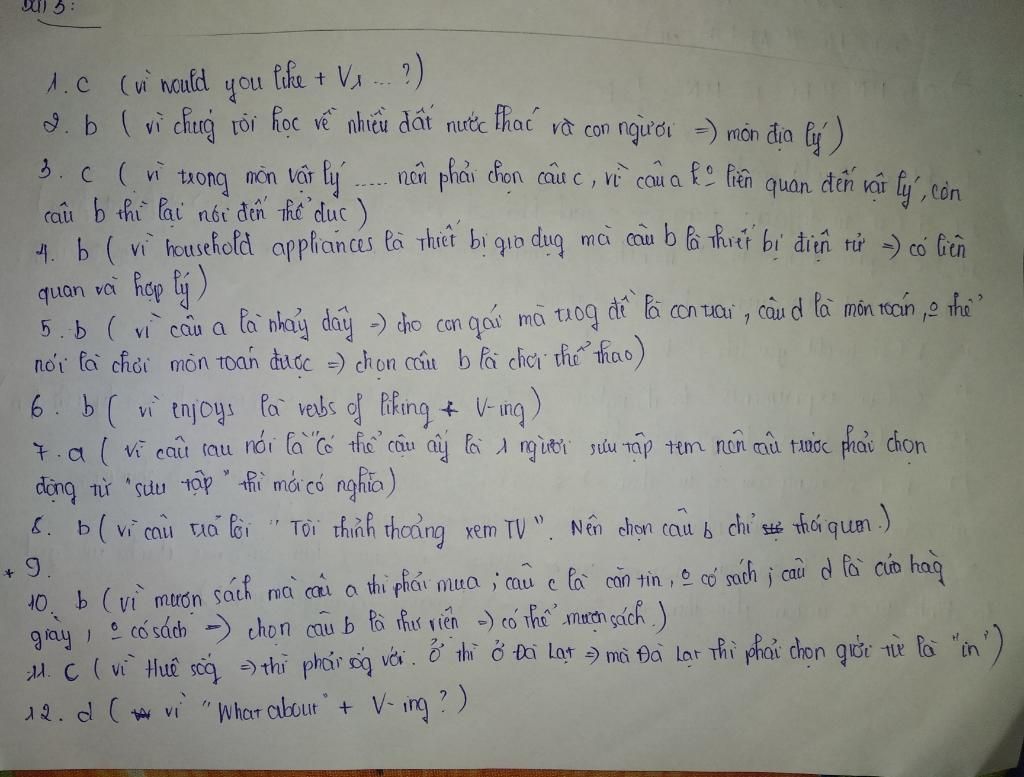 Bài 3:
1. c (vì would you like + V1 ... ?)
2. b ( vì chúg tôi học về nhiều đất nước khác và con người => môn địa lý)
3. c ( vì trong môn vật lý ..... nên phải chọn câu c, vì câu a k° liên quan đến vật lý, còn
câu b thì lại nói đến thể dục)
4. b ( vì household appliances là thiết bị gia dụg mà câu b là thiết bị điện tử => có liên
quan và hợp lý)
5. b ( vì câu a là nhảy dây => cho con gái mà trog đề là con trai, câu d là môn toán, ° thể
nói là chơi môn toán được => chọn câu b là chơi thể thao)
6. b ( vì enjoys là verbs of liking + V-ing)
7. a ( vì câu sau nói là "có thể cậu ấy là 1 người sưu tập tem nên câu trước phải chọn
động từ "sưu tập" thì mới có nghĩa)
8. b ( vì câu trả lời " Tôi thỉnh thoảng xem TV". Nên chọn câu b chỉ thói quen.)
* 9.
10. b (vì mượn sách mà câu a thì phải mua ; câu c là căn tin, ° có sách ; câu d là cửa hàg
giày, ° có sách => chọn câu b là thư viện => có thể mượn sách.)
11. c ( vì Huê sốg => thì phải sốg với. Ở thì ở Đà Lạt => mà Đà Lạt thì phải chọn giới từ là "in")
12. d ( vì "What about" + V-ing ? )